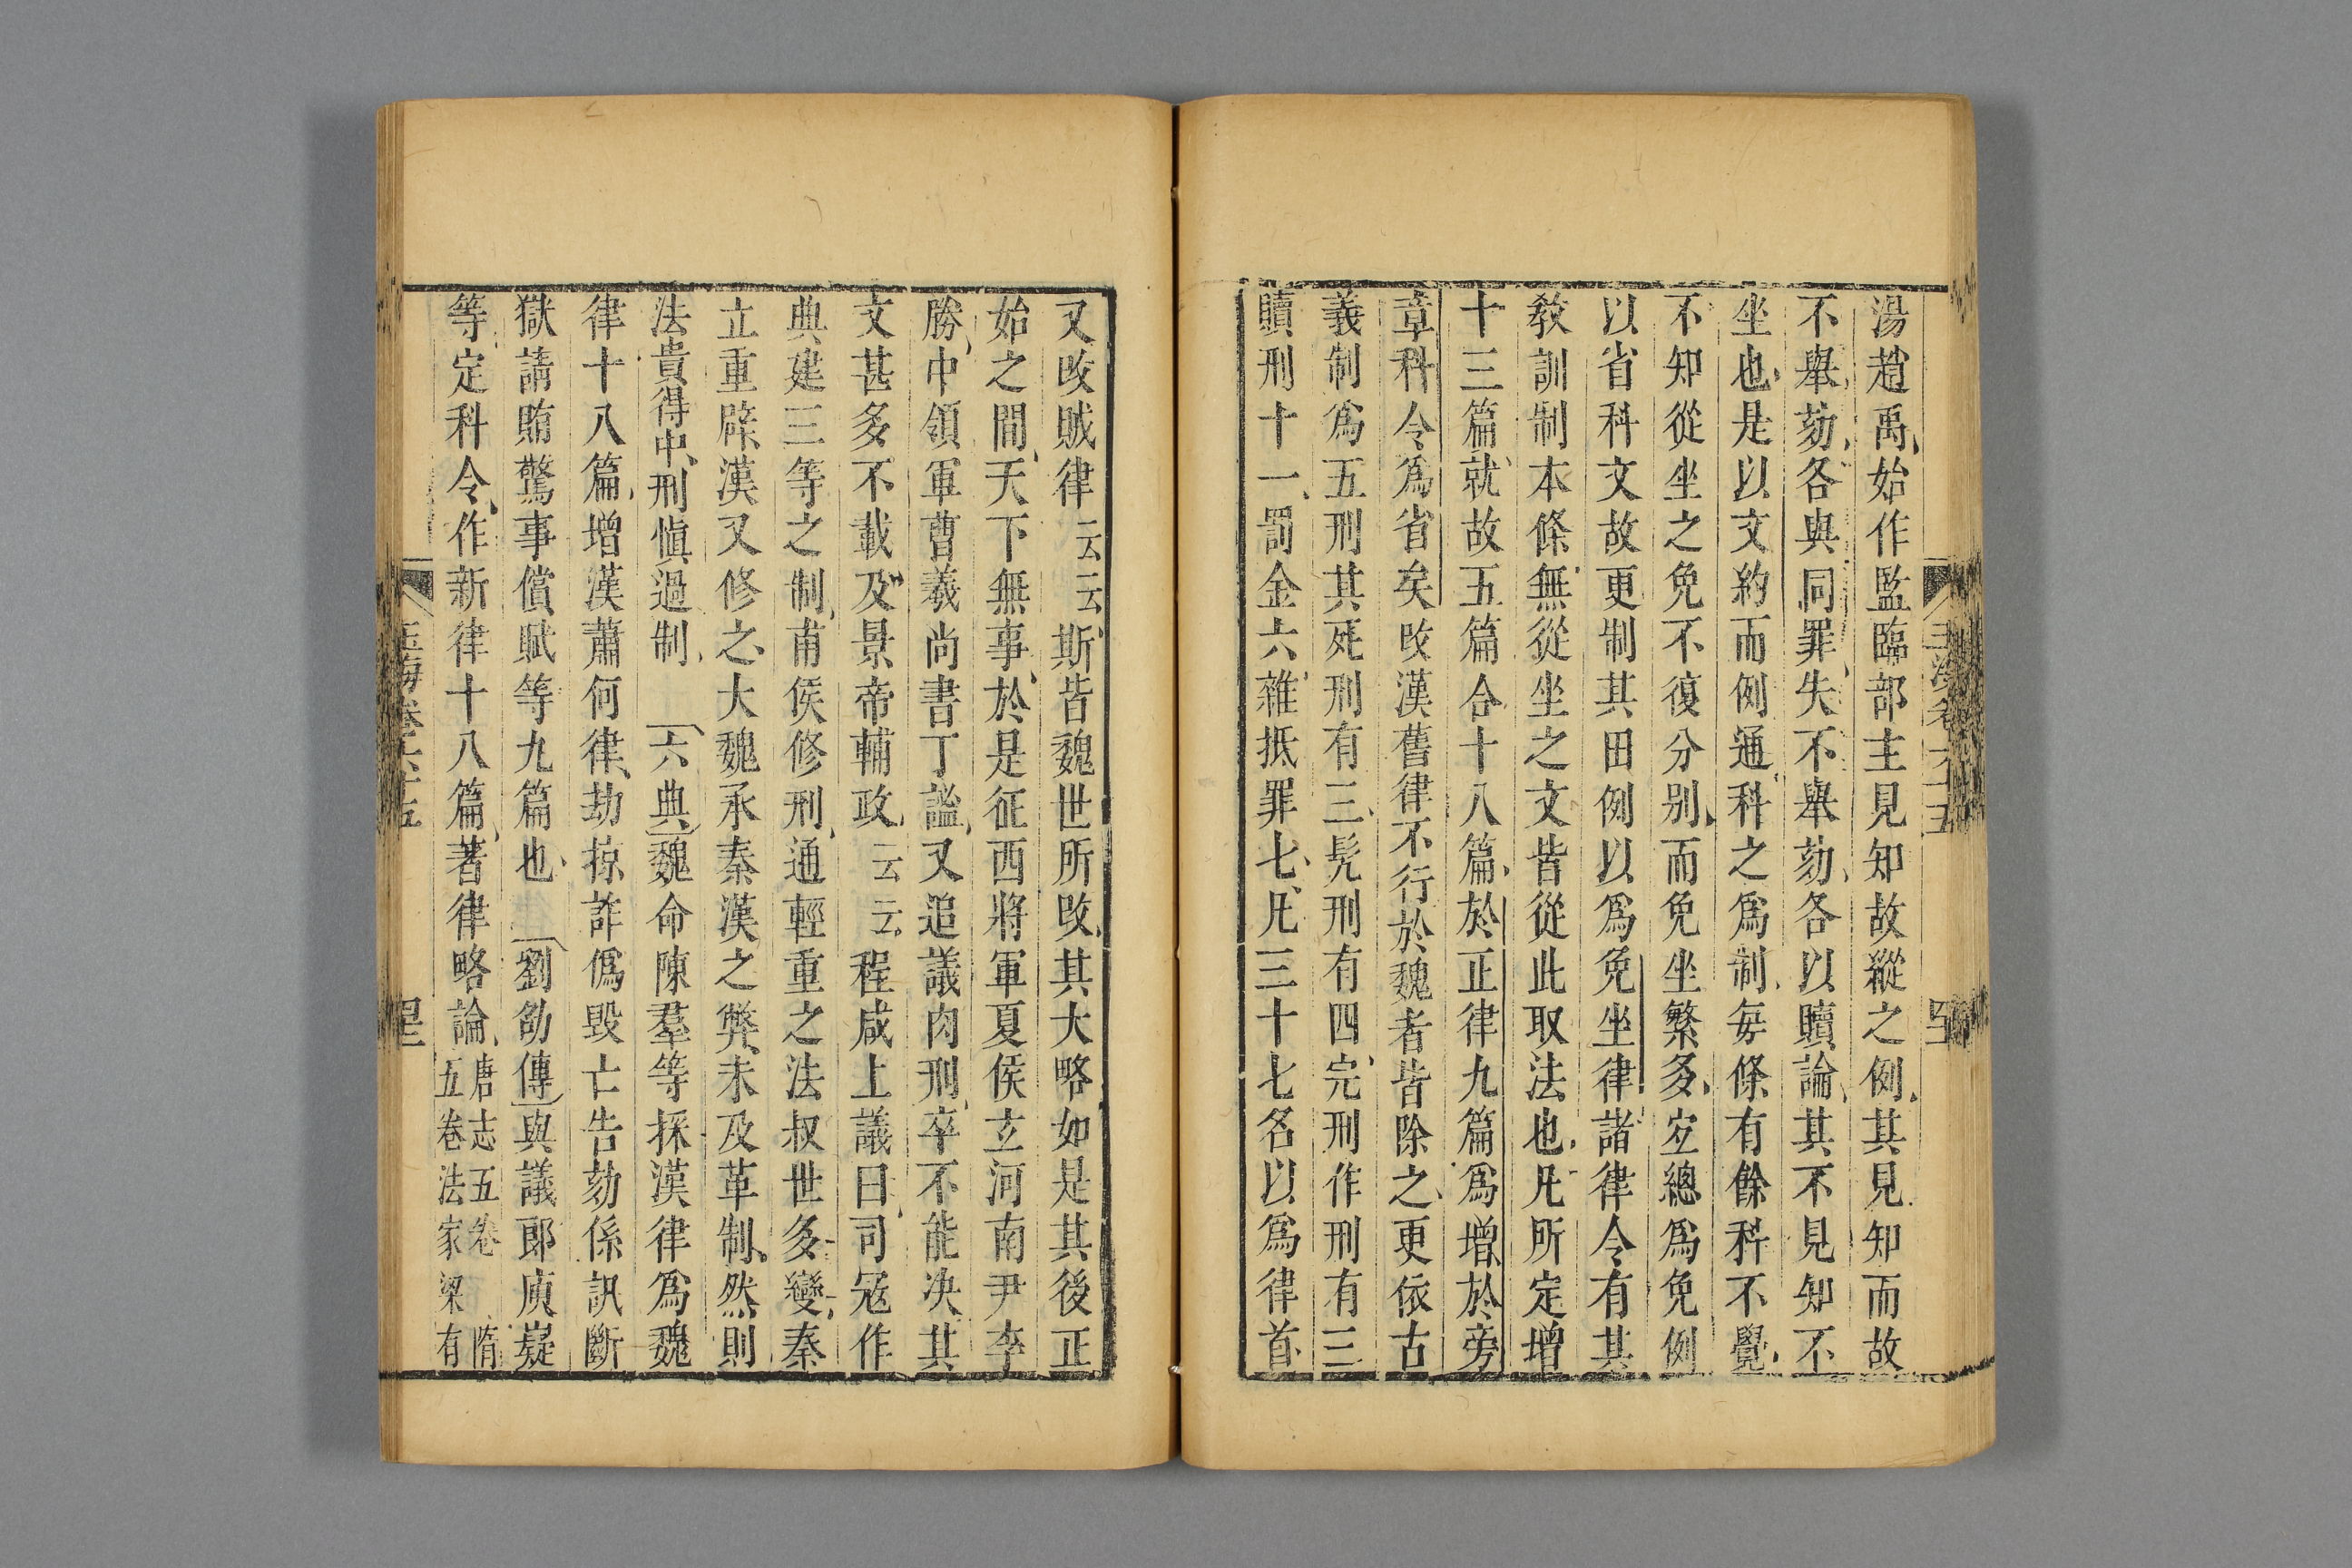 湯趙禹始作監臨部主見知故縱之例其見知而故
不舉劾各與同罪失不舉劾各以贖論其不見知不
坐也是以文約而例通科之爲制每條有餘科不覺
不知從坐之免不復分别而免坐繁多宐總爲免例
以省科文故更制其田例以爲免坐律諸律令有其
敎訓制本條無從坐之文皆從此取法也凡所定增
十三篇就故五篇合十八篇於正律九篇爲增於旁
章科令爲省矣改漢舊律不行於魏者皆除之更依古
義制爲五刑其死刑有三髠刑有四完刑作刑有三
贖刑十一罰金六雜抵罪七凡三十七名以爲律首
又改賊律云云斯皆魏世所改其大略如是其後正
始之間天下無事於是征西將軍夏侯玄河南尹李
勝中領軍曹羲尚書丁謐又追議肉刑卒不能决其
文甚多不載及景帝輔政云云程咸上議曰司冦作
典建三等之制甫侯修刑通輕重之法叔世多變秦
立重辟漢又修之大魏承秦漢之弊未及革制然則
法貴得中刑愼過制六典魏命陳羣等採漢律爲魏
律十八篇增漢蕭何律劫掠詐僞毁亡告劾係訊斷
獄請賄驚事償贓等九篇也劉劭傳與議郎庾嶷
等定科令作新律十八篇著律略論唐志五卷隋
五卷法家梁有
玉海卷六十五